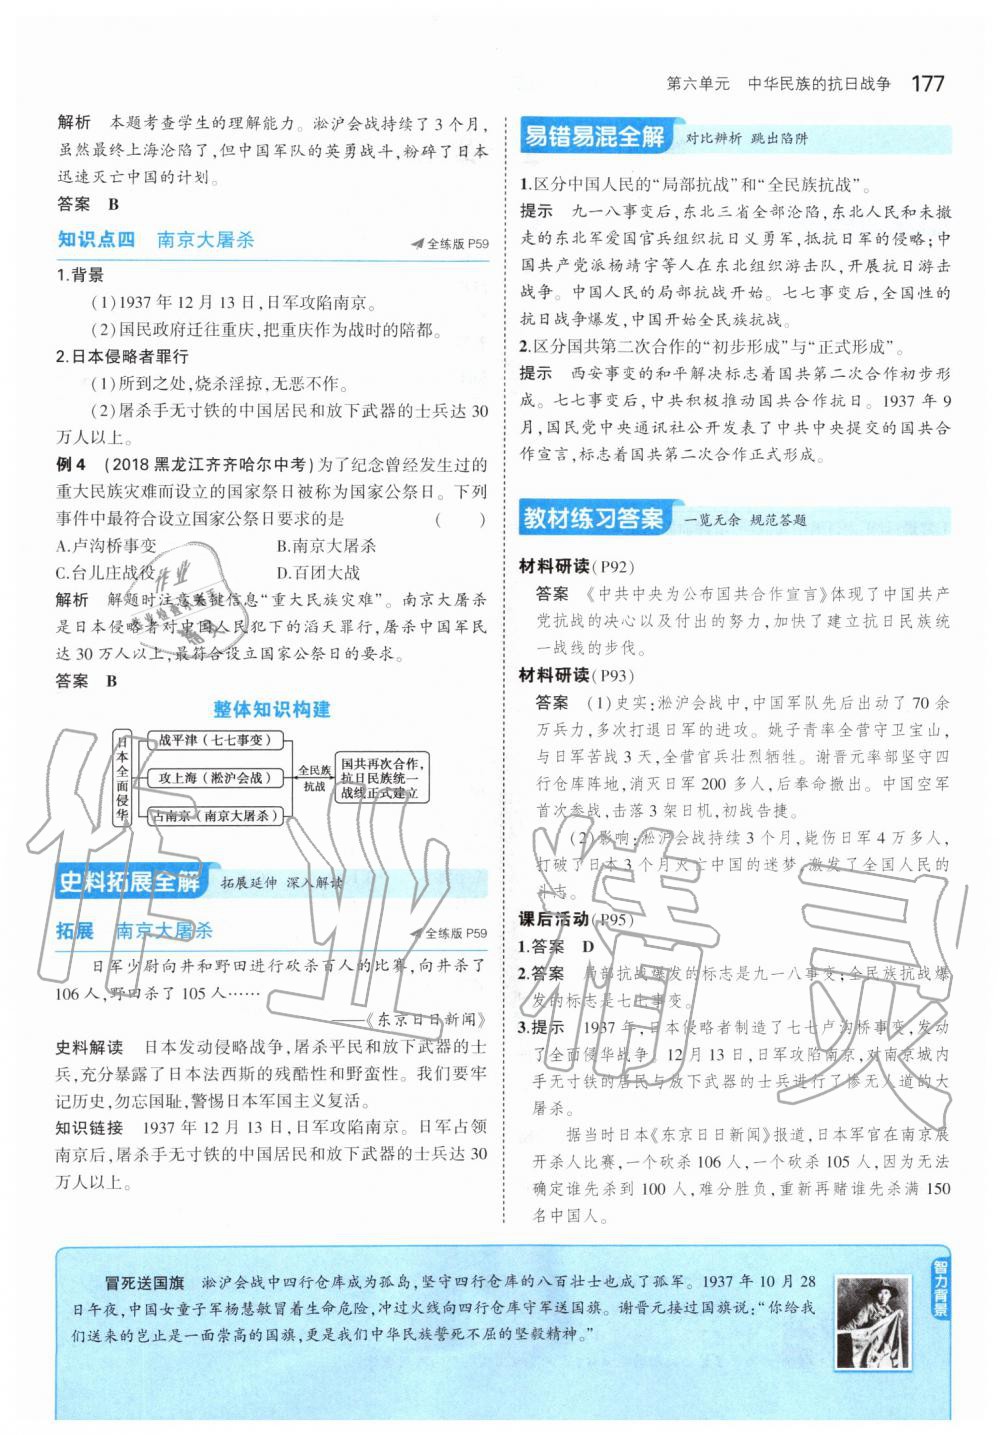 第六单元　中华民族的抗日战争　177
解析　本题考查学生的理解能力。淞沪会战持续了 3 个月，
虽然最终上海沦陷了，但中国军队的英勇战斗，粉碎了日本
迅速灭亡中国的计划。
答案　B
知识点四　南京大屠杀　全练版 P59
1.背景
（1）1937 年 12 月 13 日，日军攻陷南京。
（2）国民政府迁往重庆，把重庆作为战时的陪都。
2.日本侵略者罪行
（1）所到之处，烧杀淫掠，无恶不作。
（2）屠杀手无寸铁的中国居民和放下武器的士兵达 30
万人以上。
例 4　(2018 黑龙江齐齐哈尔中考)为了纪念曾经发生过的
重大民族灾难而设立的国家祭日被称为国家公祭日。下列
事件中最符合设立国家公祭日要求的是　（　　）
A.卢沟桥事变　B.南京大屠杀
C.台儿庄战役　D.百团大战
解析　解题时注意关键信息“重大民族灾难”。南京大屠杀
是日本侵略者对中国人民犯下的滔天罪行，屠杀中国军民
达 30 万人以上，最符合设立国家公祭日的要求。
答案　B
整体知识构建
日本全面侵华
战平津（七七事变）
攻上海（淞沪会战）
占南京（南京大屠杀）
全民族
抗战
国共再次合作，
抗日民族统一
战线正式建立
史料拓展全解　拓展延伸　深入解读
拓展　南京大屠杀　全练版 P59
日军少尉向井和野田进行砍杀百人的比赛，向井杀了
106 人，野田杀了 105 人……
——《东京日日新闻》
史料解读　日本发动侵略战争，屠杀平民和放下武器的士
兵，充分暴露了日本法西斯的残酷性和野蛮性。我们要牢
记历史，勿忘国耻，警惕日本军国主义复活。
知识链接　1937 年 12 月 13 日，日军攻陷南京。日军占领
南京后，屠杀手无寸铁的中国居民和放下武器的士兵达 30
万人以上。
易错易混全解　对比辨析　跳出陷阱
1.区分中国人民的“局部抗战”和“全民族抗战”。
提示　九一八事变后，东北三省全部沦陷，东北人民和未撤
走的东北军爱国官兵组织抗日义勇军，抵抗日军的侵略；中
国共产党派杨靖宇等人在东北组织游击队，开展抗日游击
战争。中国人民的局部抗战开始。七七事变后，全国性的
抗日战争爆发，中国开始全民族抗战。
2.区分国共第二次合作的“初步形成”与“正式形成”。
提示　西安事变的和平解决标志着国共第二次合作初步形
成。七七事变后，中共积极推动国共合作抗日。1937 年 9
月，国民党中央通讯社公开发表了中共中央提交的国共合
作宣言，标志着国共第二次合作正式形成。
教材练习答案　一览无余　规范答题
材料研读(P92)
答案　《中共中央为公布国共合作宣言》体现了中国共产
党抗战的决心以及付出的努力，加快了建立抗日民族统
一战线的步伐。
材料研读(P93)
答案　(1)史实：淞沪会战中，中国军队先后出动了 70 余
万兵力，多次打退日军的进攻。姚子青率全营守卫宝山，
与日军苦战 3 天，全营官兵壮烈牺牲。谢晋元率部坚守四
行仓库阵地，消灭日军 200 多人，后奉命撤出。中国空军
首次参战，击落 3 架日机，初战告捷。
(2)影响：淞沪会战持续 3 个月，毙伤日军 4 万多人，
打破了日本 3 个月灭亡中国的迷梦，激发了全国人民的
斗志。
课后活动(P95)
1.答案　D
2.答案　局部抗战爆发的标志是九一八事变；全民族抗战爆
发的标志是七七事变。
3.提示　1937 年，日本侵略者制造了七七卢沟桥事变，发动
了全面侵华战争。12 月 13 日，日军攻陷南京，对南京城内
手无寸铁的居民与放下武器的士兵进行了惨无人道的大
屠杀。
据当时日本《东京日日新闻》报道，日本军官在南京展
开杀人比赛，一个砍杀 106 人，一个砍杀 105 人，因为无法
确定谁先杀到 100 人，难分胜负，重新再赌谁先杀满 150
名中国人。
智力背景
冒死送国旗　淞沪会战中四行仓库成为孤岛，坚守四行仓库的八百壮士也成了孤军。1937 年 10 月 28
日午夜，中国女童子军杨慧敏冒着生命危险，冲过火线向四行仓库守军送国旗。谢晋元接过国旗说：“你给我
们送来的岂止是一面崇高的国旗，更是我们中华民族誓死不屈的坚毅精神。”
作业精灵